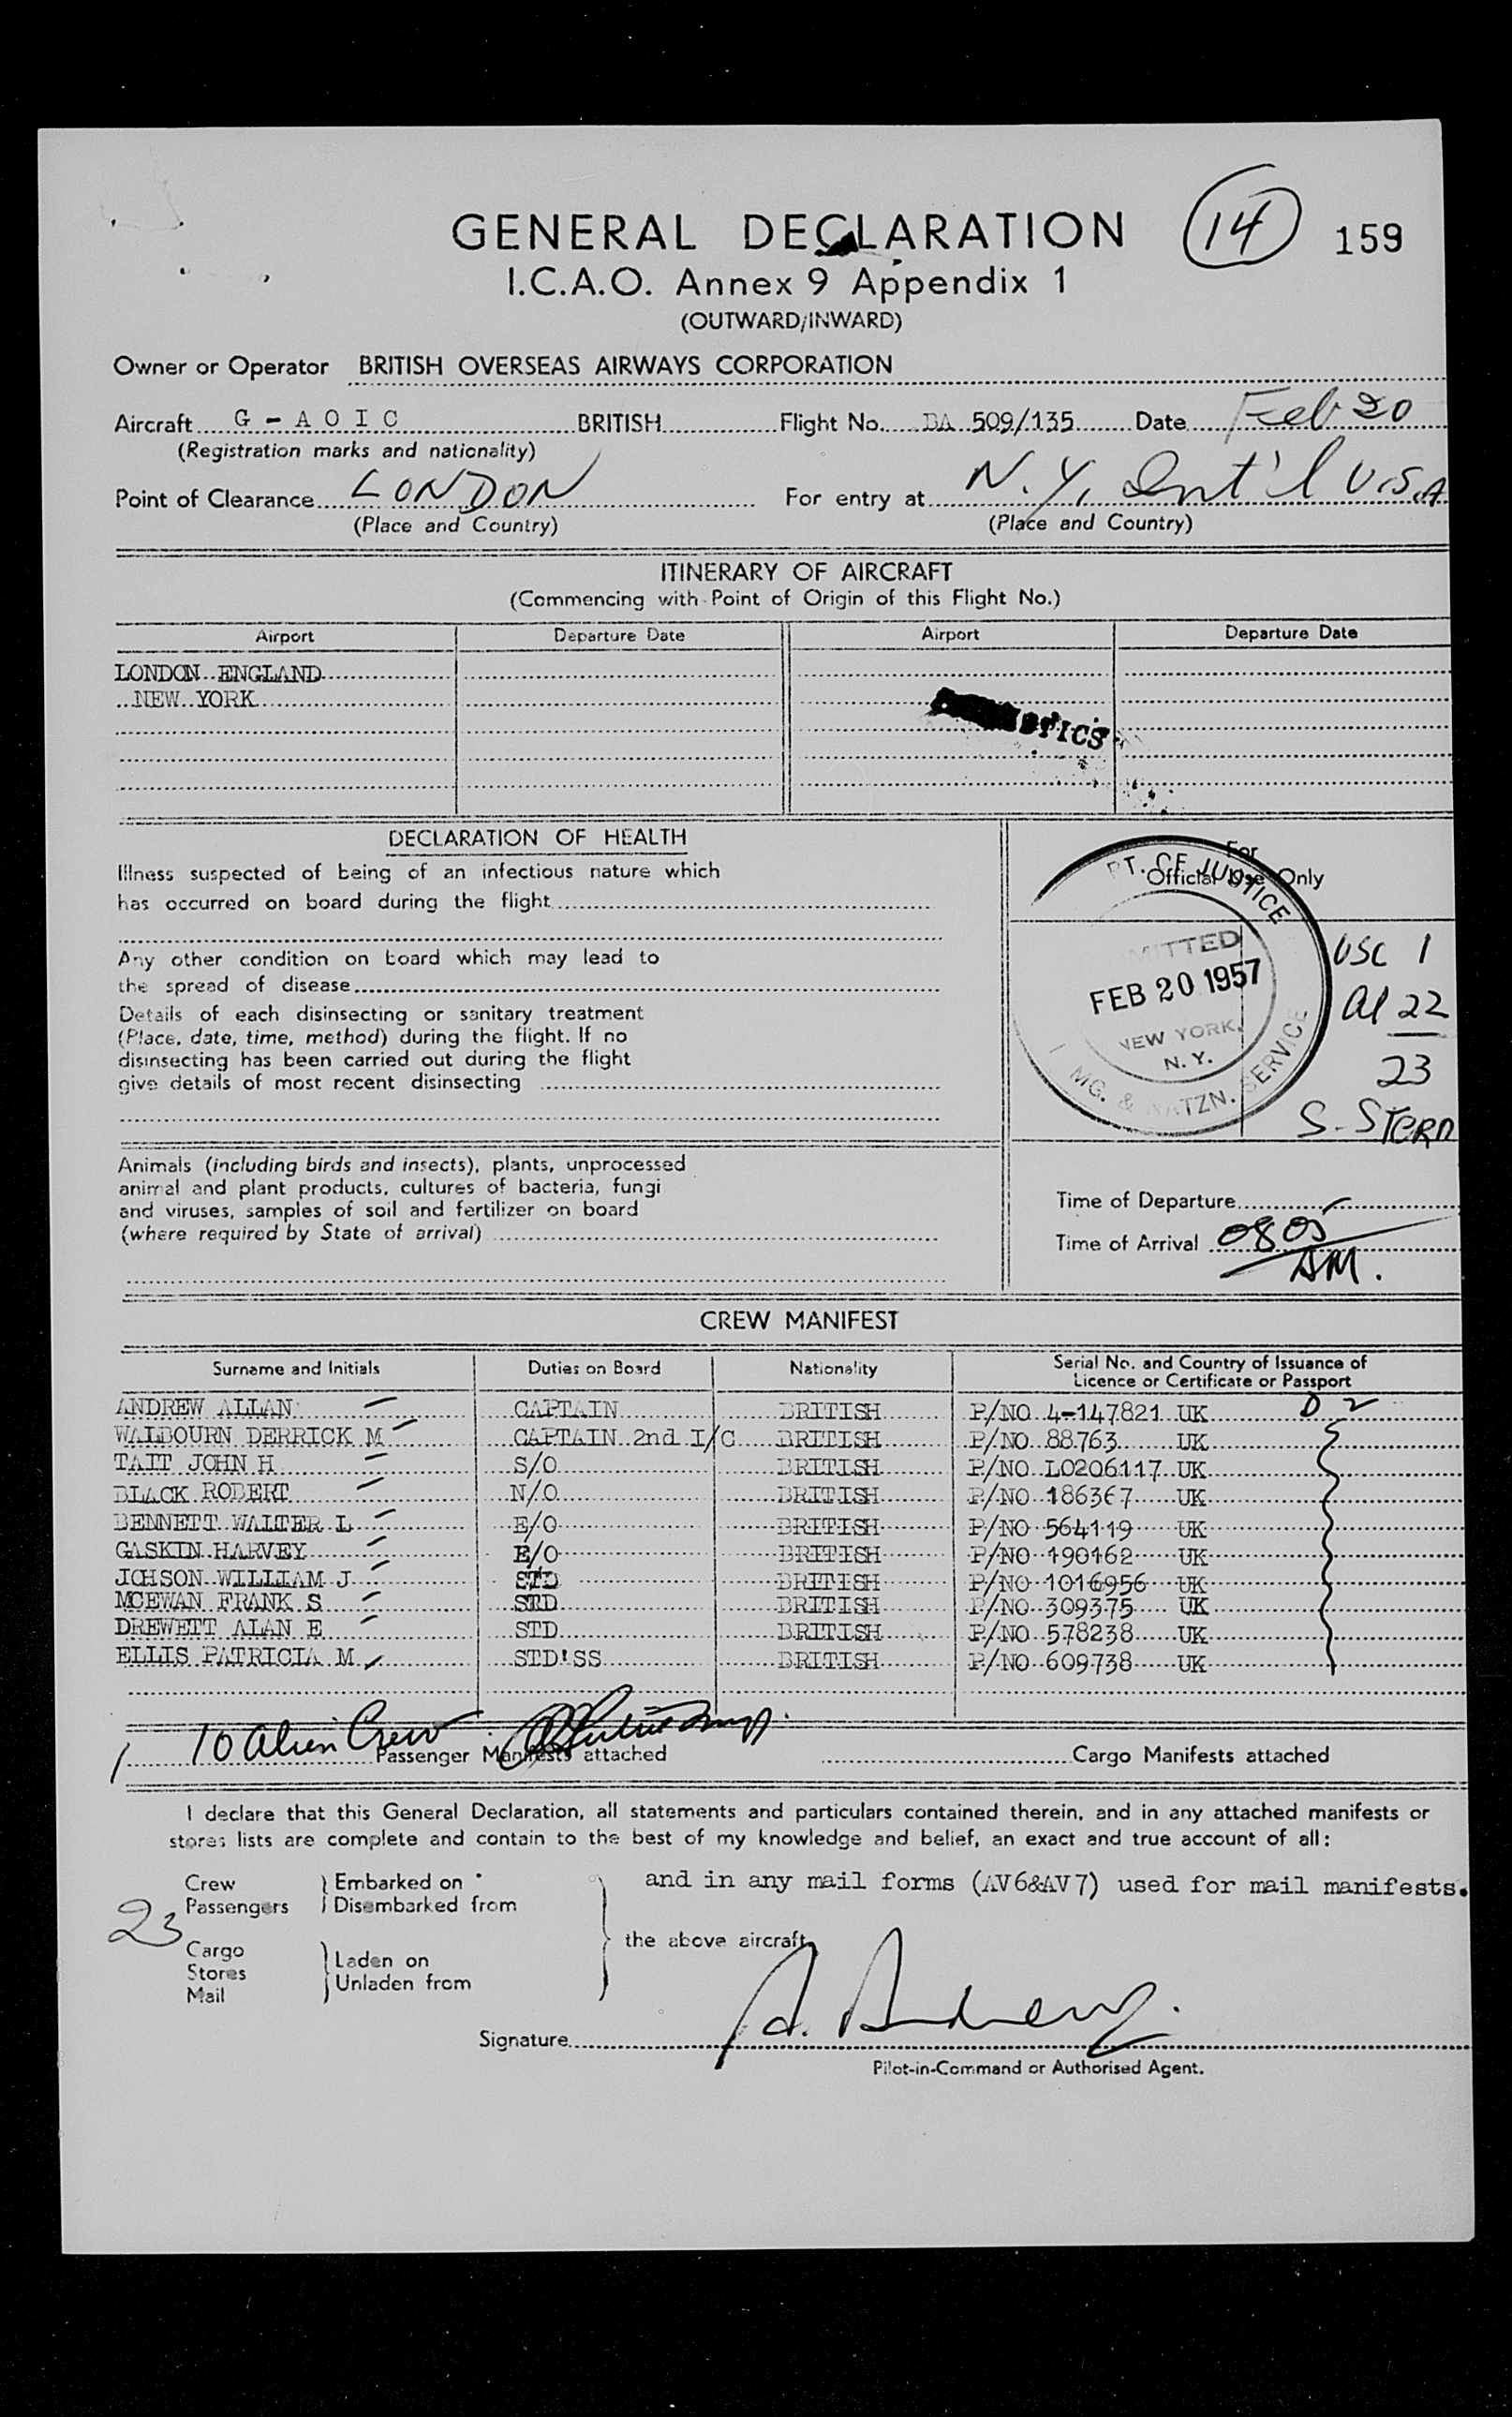 GENERAL DECLARATION
14
159
I.C.A.O. Annex 9 Appendix 1
(OUTWARD/INWARD)
Owner or Operator BRITISH OVERSEAS AIRWAYS CORPORATION
Aircraft G - A O I C BRITISH Flight No. BA 509/135 Date Feb 20
(Registration marks and nationality)
Point of Clearance LONDON For entry at N. Y. Int'l U.S.A
(Place and Country) (Place and Country)
ITINERARY OF AIRCRAFT
(Commencing with Point of Origin of this Flight No.)
Airport Departure Date Airport Departure Date
LONDON ENGLAND
NEW YORK
DECLARATION OF HEALTH
Illness suspected of being of an infectious nature which
has occurred on board during the flight
Any other condition on board which may lead to
the spread of disease
Details of each disinsecting or sanitary treatment
(Place, date, time, method) during the flight. If no
disinsecting has been carried out during the flight
give details of most recent disinsecting
For
Official Use Only
PT. OF JUSTICE
MITTED
FEB 20 1957
NEW YORK,
N. Y.
IMG. & NATZN. SERVICE
USC 1
Al 22
23
S. STERN
Animals (including birds and insects), plants, unprocessed
animal and plant products, cultures of bacteria, fungi
and viruses, samples of soil and fertilizer on board
(where required by State of arrival)
Time of Departure
Time of Arrival 0805
AM.
CREW MANIFEST
Surname and Initials Duties on Board Nationality Serial No. and Country of Issuance of
Licence or Certificate or Passport
ANDREW ALLAN CAPTAIN BRITISH P/NO 4-147821 UK D 2
WALBOURN DERRICK M CAPTAIN 2nd I/C BRITISH P/NO 88763 UK
TAIT JOHN H S/O BRITISH P/NO L0206117 UK
BLACK ROBERT N/O BRITISH P/NO 186367 UK
BENNETT WALTER L E/O BRITISH P/NO 564119 UK
GASKIN HARVEY E/O BRITISH P/NO 190162 UK
JOHSON WILLIAM J STD BRITISH P/NO 1016956 UK
MCEWAN FRANK S STD BRITISH P/NO 309375 UK
DREWETT ALAN E STD BRITISH P/NO 578238 UK
ELLIS PATRICIA M STD'SS BRITISH P/NO 609738 UK
10 Alien Crew
Passenger Manifests attached Cargo Manifests attached
I declare that this General Declaration, all statements and particulars contained therein, and in any attached manifests or
stores lists are complete and contain to the best of my knowledge and belief, an exact and true account of all:
Crew Embarked on and in any mail forms (AV6&AV7) used for mail manifests.
Passengers Disembarked from
23
the above aircraft
Cargo Laden on
Stores Unladen from
Mail
Signature A. Andrew.
Pilot-in-Command or Authorised Agent.